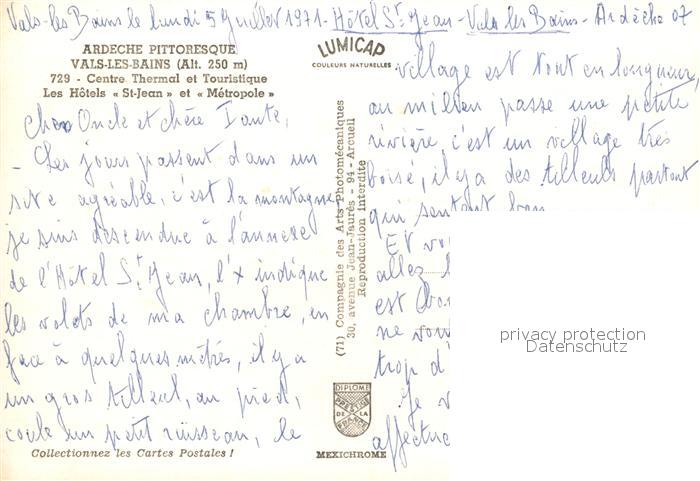 Vals-les-Bains le lundi 5 Juillet 1971 - Hôtel St Jean - Vals les Bains - Ardèche 07
ARDECHE PITTORESQUE
VALS-LES-BAINS (Alt. 250 m)
729 - Centre Thermal et Touristique
Les Hôtels « St-Jean » et « Métropole »
LUMICAP
COULEURS NATURELLES
Cher Oncle et chère Tante,
- Les jours passent dans un
site agréable, c'est la montagne,
je suis descendue à l'annexe
de l'Hôtel St Jean, l'x indique
les volets de ma chambre, en
face à quelques mètres, il y a
un gros tilleul, au pied,
coule un petit ruisseau, le
village est tout en longueur,
au milieu passe une petite
rivière, c'est un village très
boisé, il y a des tilleuls partout
qui sentent bon
Et
allez
est
ne vou
trop d'
Je v
affectue
(71) Compagnie des Arts Photomécaniques
30, avenue Jean-Jaurès - 94 - Arcueil
Reproduction interdite
DIPLOME
PRESTIGE
DE LA
FRANCE
MEXICHROME
Collectionnez les Cartes Postales !
privacy protection
Datenschutz